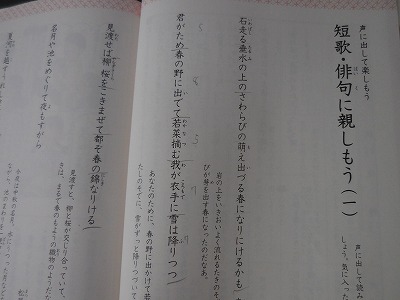 声に出して楽しもう
短歌・俳句に親しもう（一）
声に出して読み
しょう。気に入った
石走る垂水の上のさわらびの萌え出づる春になりにけるかも
岩の上をいきおいよく流れるたきのそ
びが芽を出す春になったのだなあ。
君がため春の野に出でて若菜摘む我が衣手に雪は降りつつ
あなたのために、春の野に出かけて若
たしのそでに、雪がずっと降りつづいて
見渡せば柳桜をこきまぜて都ぞ春の錦なりける
見渡すと、柳と桜が交じり合っていて、
さは、まるで春のもようの織物のようだな
名月や池をめぐりて夜もすがら
今夜は中秋の名月
ながら、池のまわりを